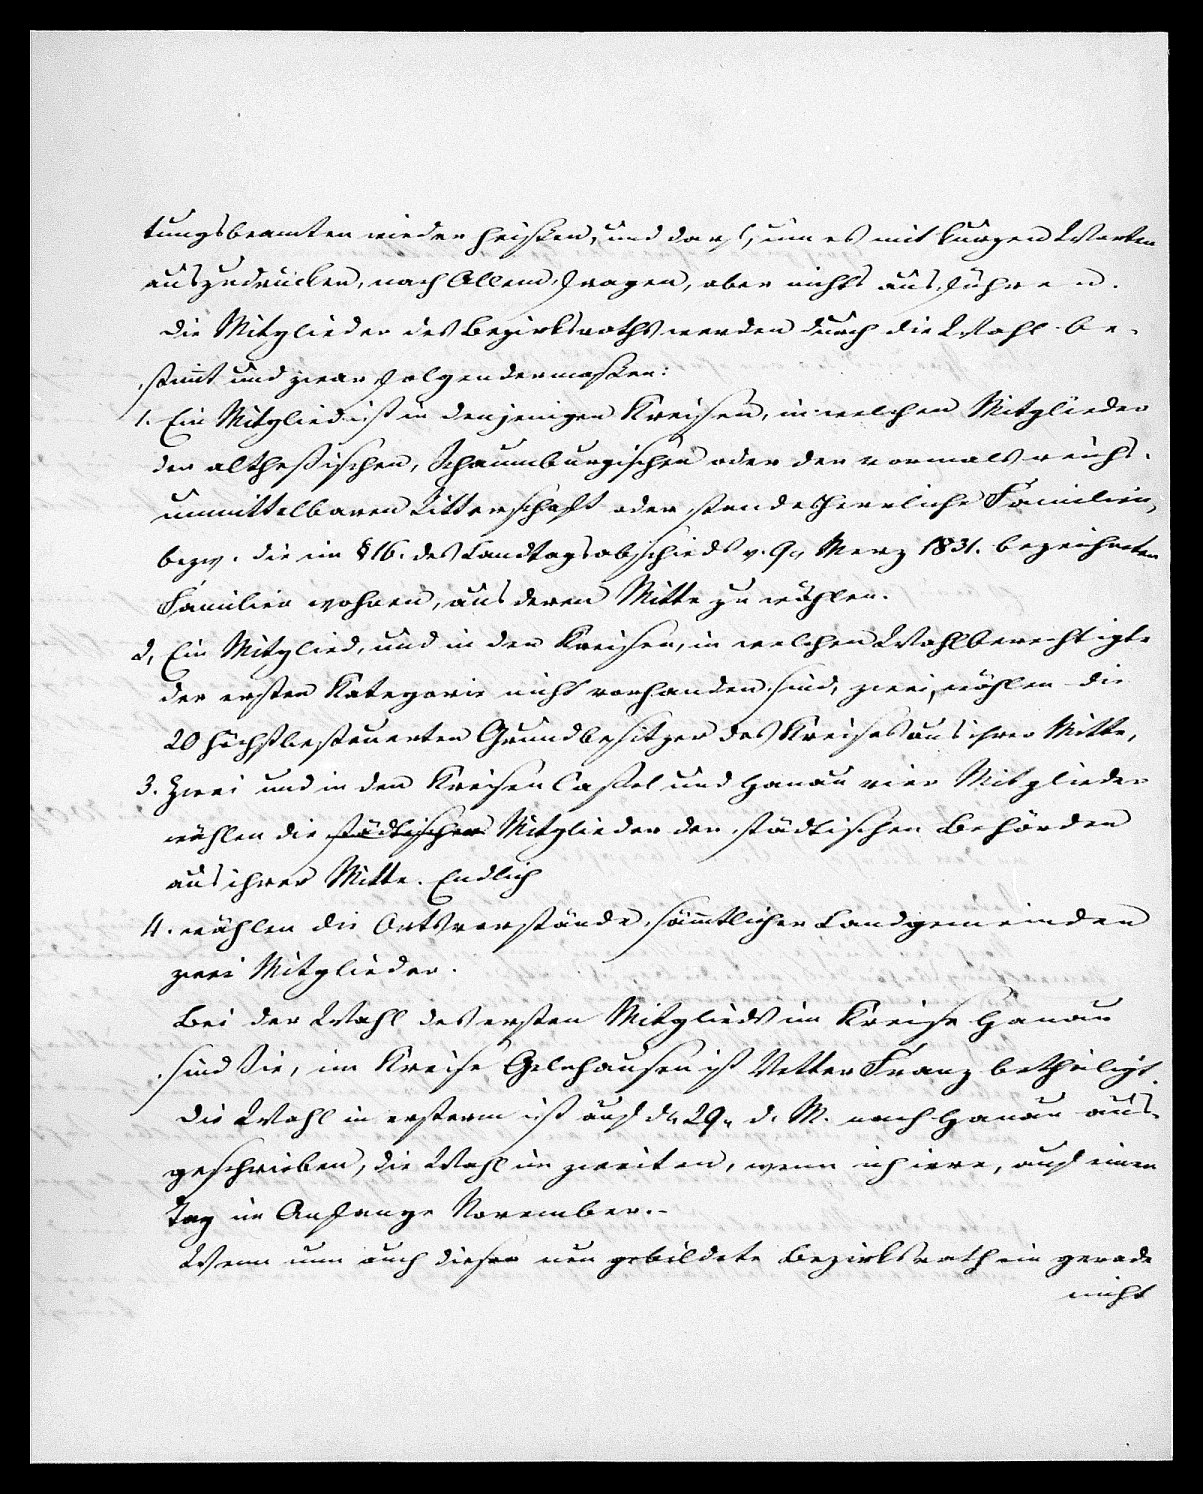 tungsbeamten wieder heißen, und darf, um es mit kurzen Worten
auszudrücken, nach Allem fragen, aber nichts ausführen.
Die Mitglieder des Bezirksraths werden durch die Wahl be-
stimt und zwar folgendermaßen:
1. Ein Mitglied ist in denjenigen Kreisen, in welchen Mitglieder
der altheßischen, Schaumburgischen oder der vormals reichs-
unmittelbaren Ritterschaft oder standesherrliche Familien,
bezw. die im § 16. des Landtagsabschieds v. 9. Merz 1831. bezeichneten
Familien wohnen, aus deren Mitte zu wählen.
2, Ein Mitglied, und in den Kreisen, in welchen Wahlberechtigte
der ersten Kategorie nicht vorhanden sind, zwei, wählen die
20 höchstbesteuerten Grundbesitzer des Kreises aus ihrer Mitte,
3. Zwei und in den Kreisen Caßel und Hanau vier Mitglieder
wählen die städtischen Mitglieder der städtischen Behörden
aus ihrer Mitte. Endlich
4. wählen die Ortsvorstände sämtlicher Landgemeinden
zwei Mitglieder.
Bei der Wahl des ersten Mitglieds im Kreise Hanau
sind Sie, im Kreise Gelnhausen ist Vetter Franz betheiligt.
Die Wahl in ersterm ist auf d. 29. d. M. nach Hanau aus-
geschrieben, die Wahl im zweiten, wenn ich irre, auf einen
Tag im Anfange November.-
Wenn nun auch dieser neu gebildete Bezirksrath ein gerade
nicht